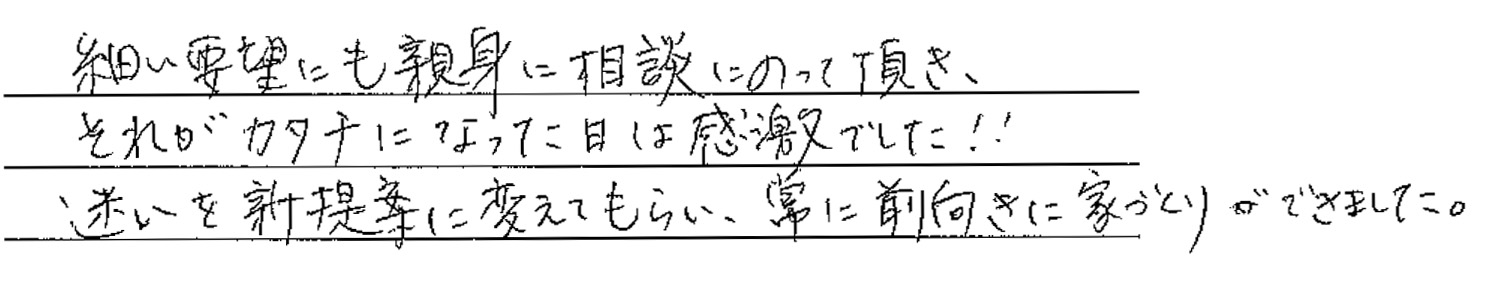 細い要望にも親身に相談にのって頂き、
それがカタチになった日は感激でした!!
迷いを新提案に変えてもらい、常に前向きに家づくりができました。